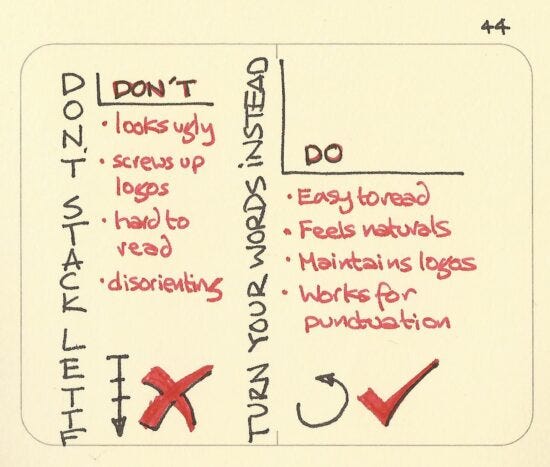 44
DON'T STACK LETTE
DON'T
· looks ugly
· screws up
logos
· hard to
read
· disorienting
TURN YOUR WORDS INSTEAD
DO
· Easy to read
· Feels naturals
· Maintains logos
· Works for
punctuation